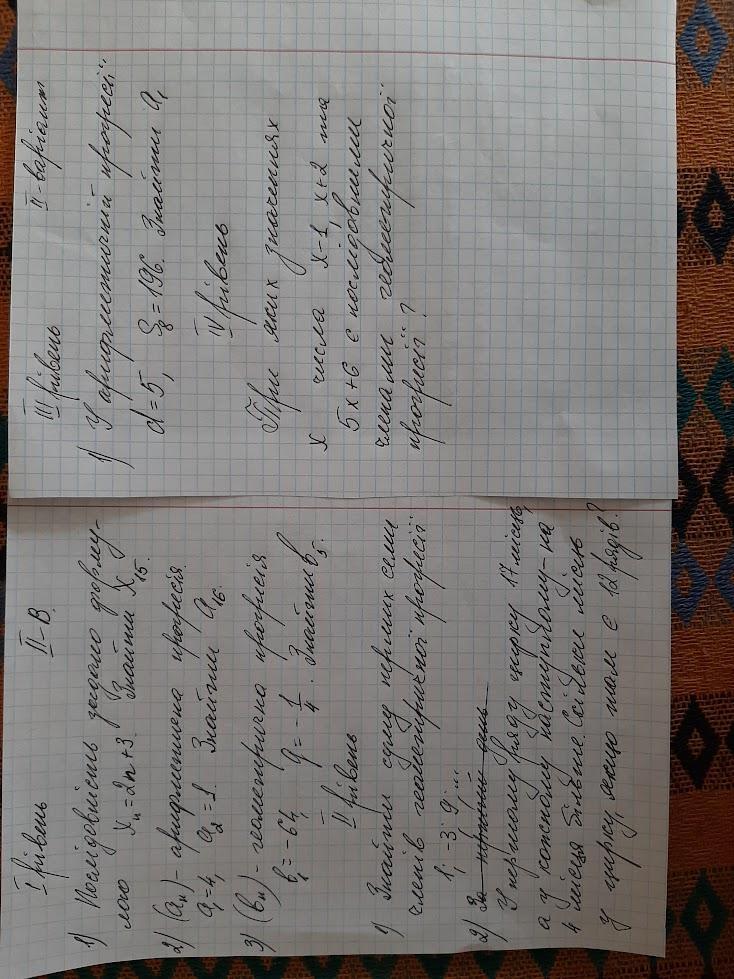 I рівень II-В.
1) Послідовність задано форму-
лою xₙ=2n+3. Знайти x₁₅.
2) (aₙ)- арифметична прогресія
a₁=4, a₂=1. Знайти a₁₆.
3) (bₙ)- геометрична прогресія
b₁=-64, q=-1/4. Знайти b₅.
II рівень
1) Знайти суму перших семи
членів геометричної прогресії
1; -3; 9; ...
2) За
У першому ряду цирку 17 місць,
а у кожному наступному-на
4 місця більше. Скільки місць
у цирку, якщо там є 12 рядів?
III рівень II-варіант
1) У арифметичній прогресії
d=5, S₈=196. Знайти a₁
IV рівень
При яких значеннях
x числа x-1, x+2 та
5x+6 є послідовними
членами геометричної
прогресії?